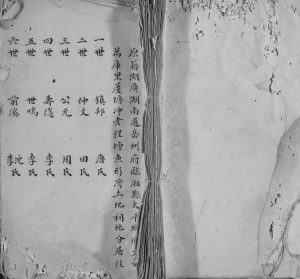 原籍湖廣湖南道岳州府臨湘縣太平
萬庫里蘆塘沖老程塘魚形灣土地祠地分居住
一世 鎮邦 氏
二世 仲文 田氏
三世 公元 周氏
四世 壽 李氏
五世 世鳴 李氏
六世 前 沈氏 李氏